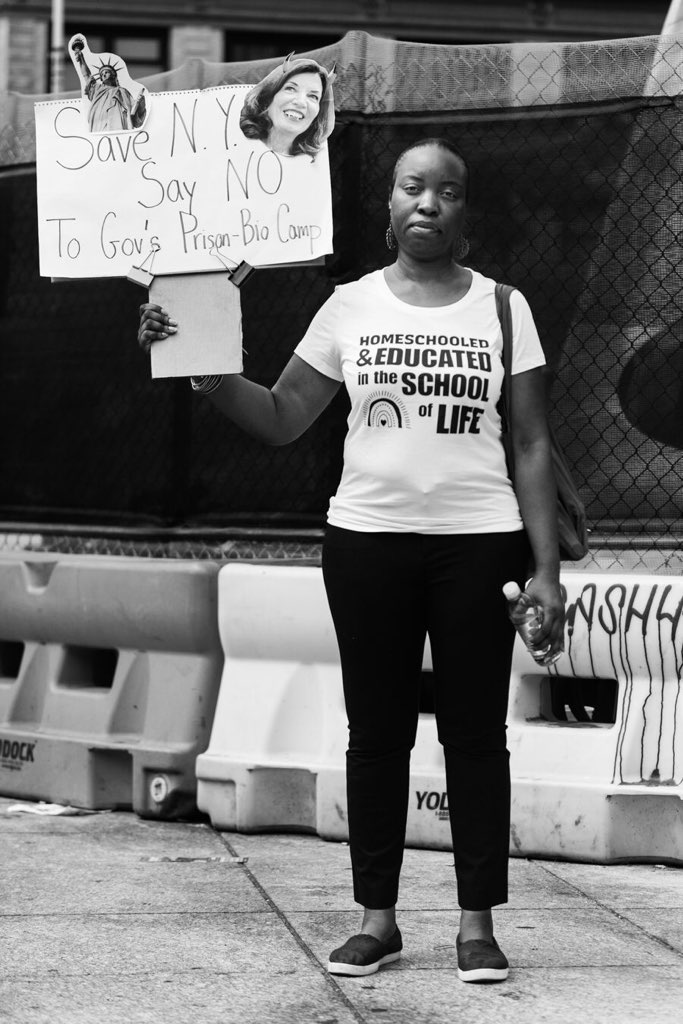 Save N.Y.
Say NO
To Gov's Prison-Bio Camp
HOMESCHOOLED
& EDUCATED
in the SCHOOL
of LIFE
ASHY
DOCK
YO